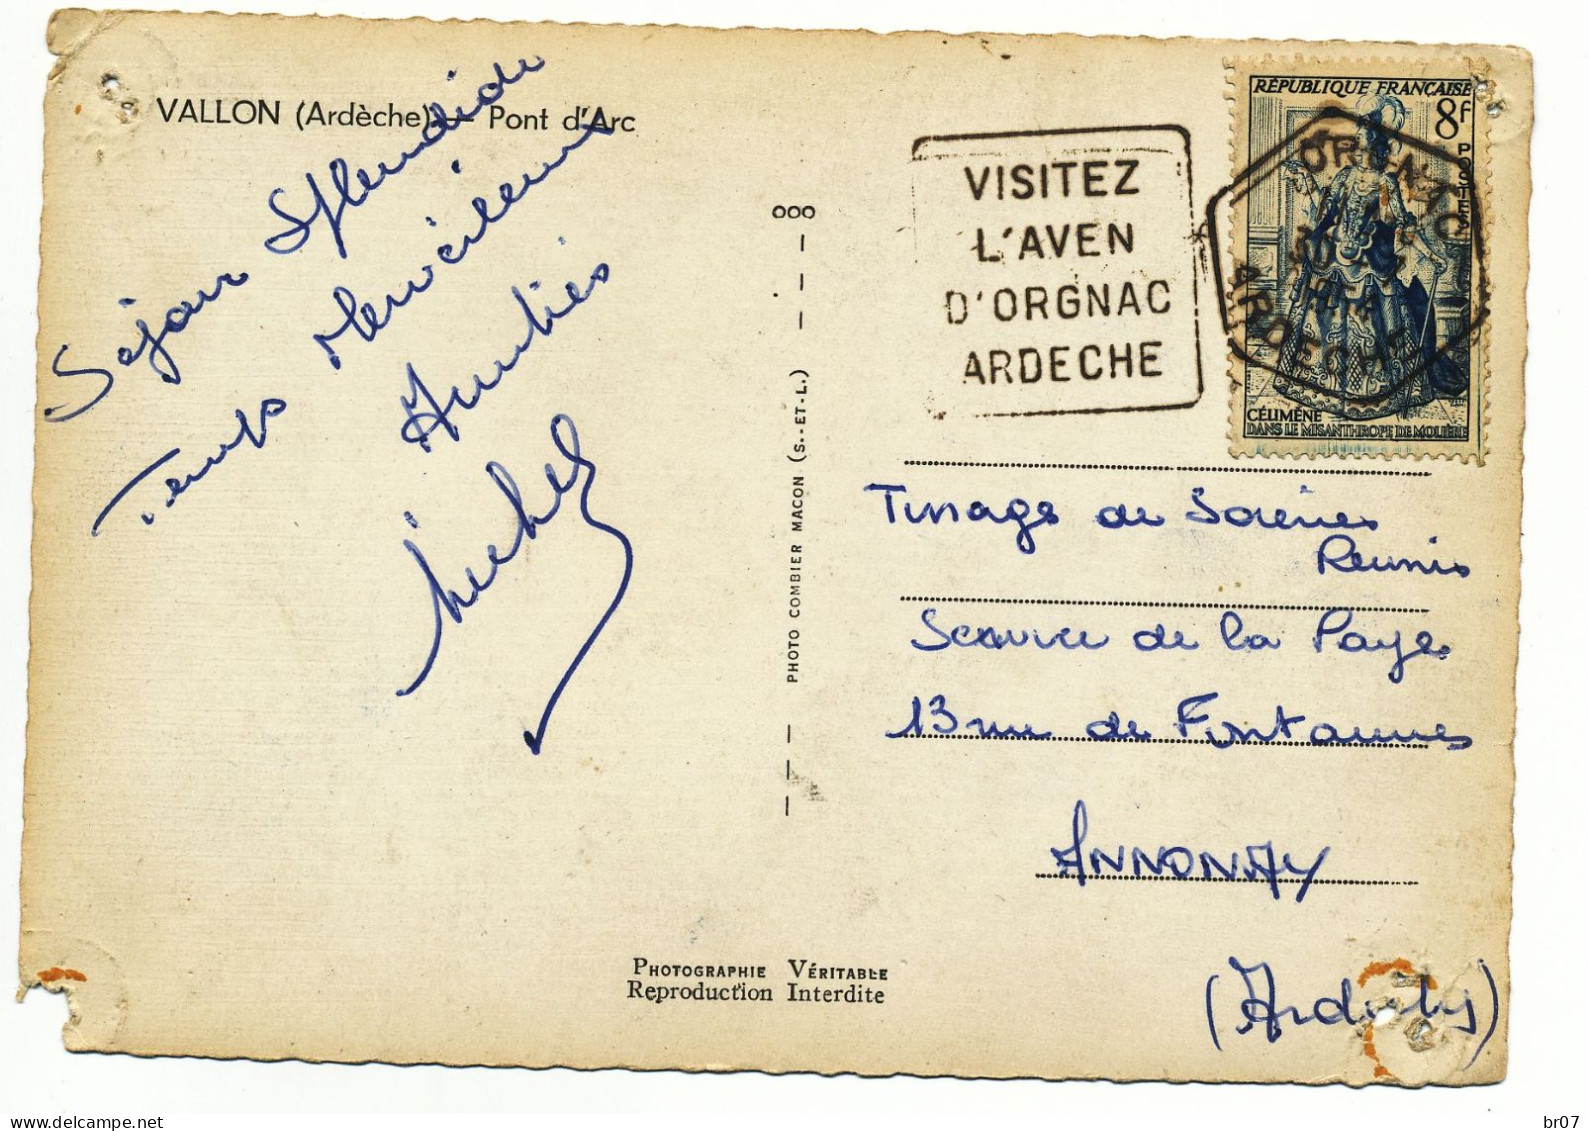 VALLON (Ardèche) — Pont d'Arc
Séjour Splendide
Temps Merveilleux
Amitiés
Michel
ooo
PHOTO COMBIER MACON (S.-ET-L.)
VISITEZ
L'AVEN
D'ORGNAC
ARDECHE
RÉPUBLIQUE FRANÇAISE
8F
POSTES
CÉLIMÈNE
DANS LE MISANTHROPE DE MOLIÈRE
ORGNAC
30
1954
ARDECHE
Tissage de Soieries
Reunis
Service de la Paye
13 rue de Fontanes
ANNONAY
(Ardèche)
PHOTOGRAPHIE VÉRITABLE
Reproduction Interdite
br07